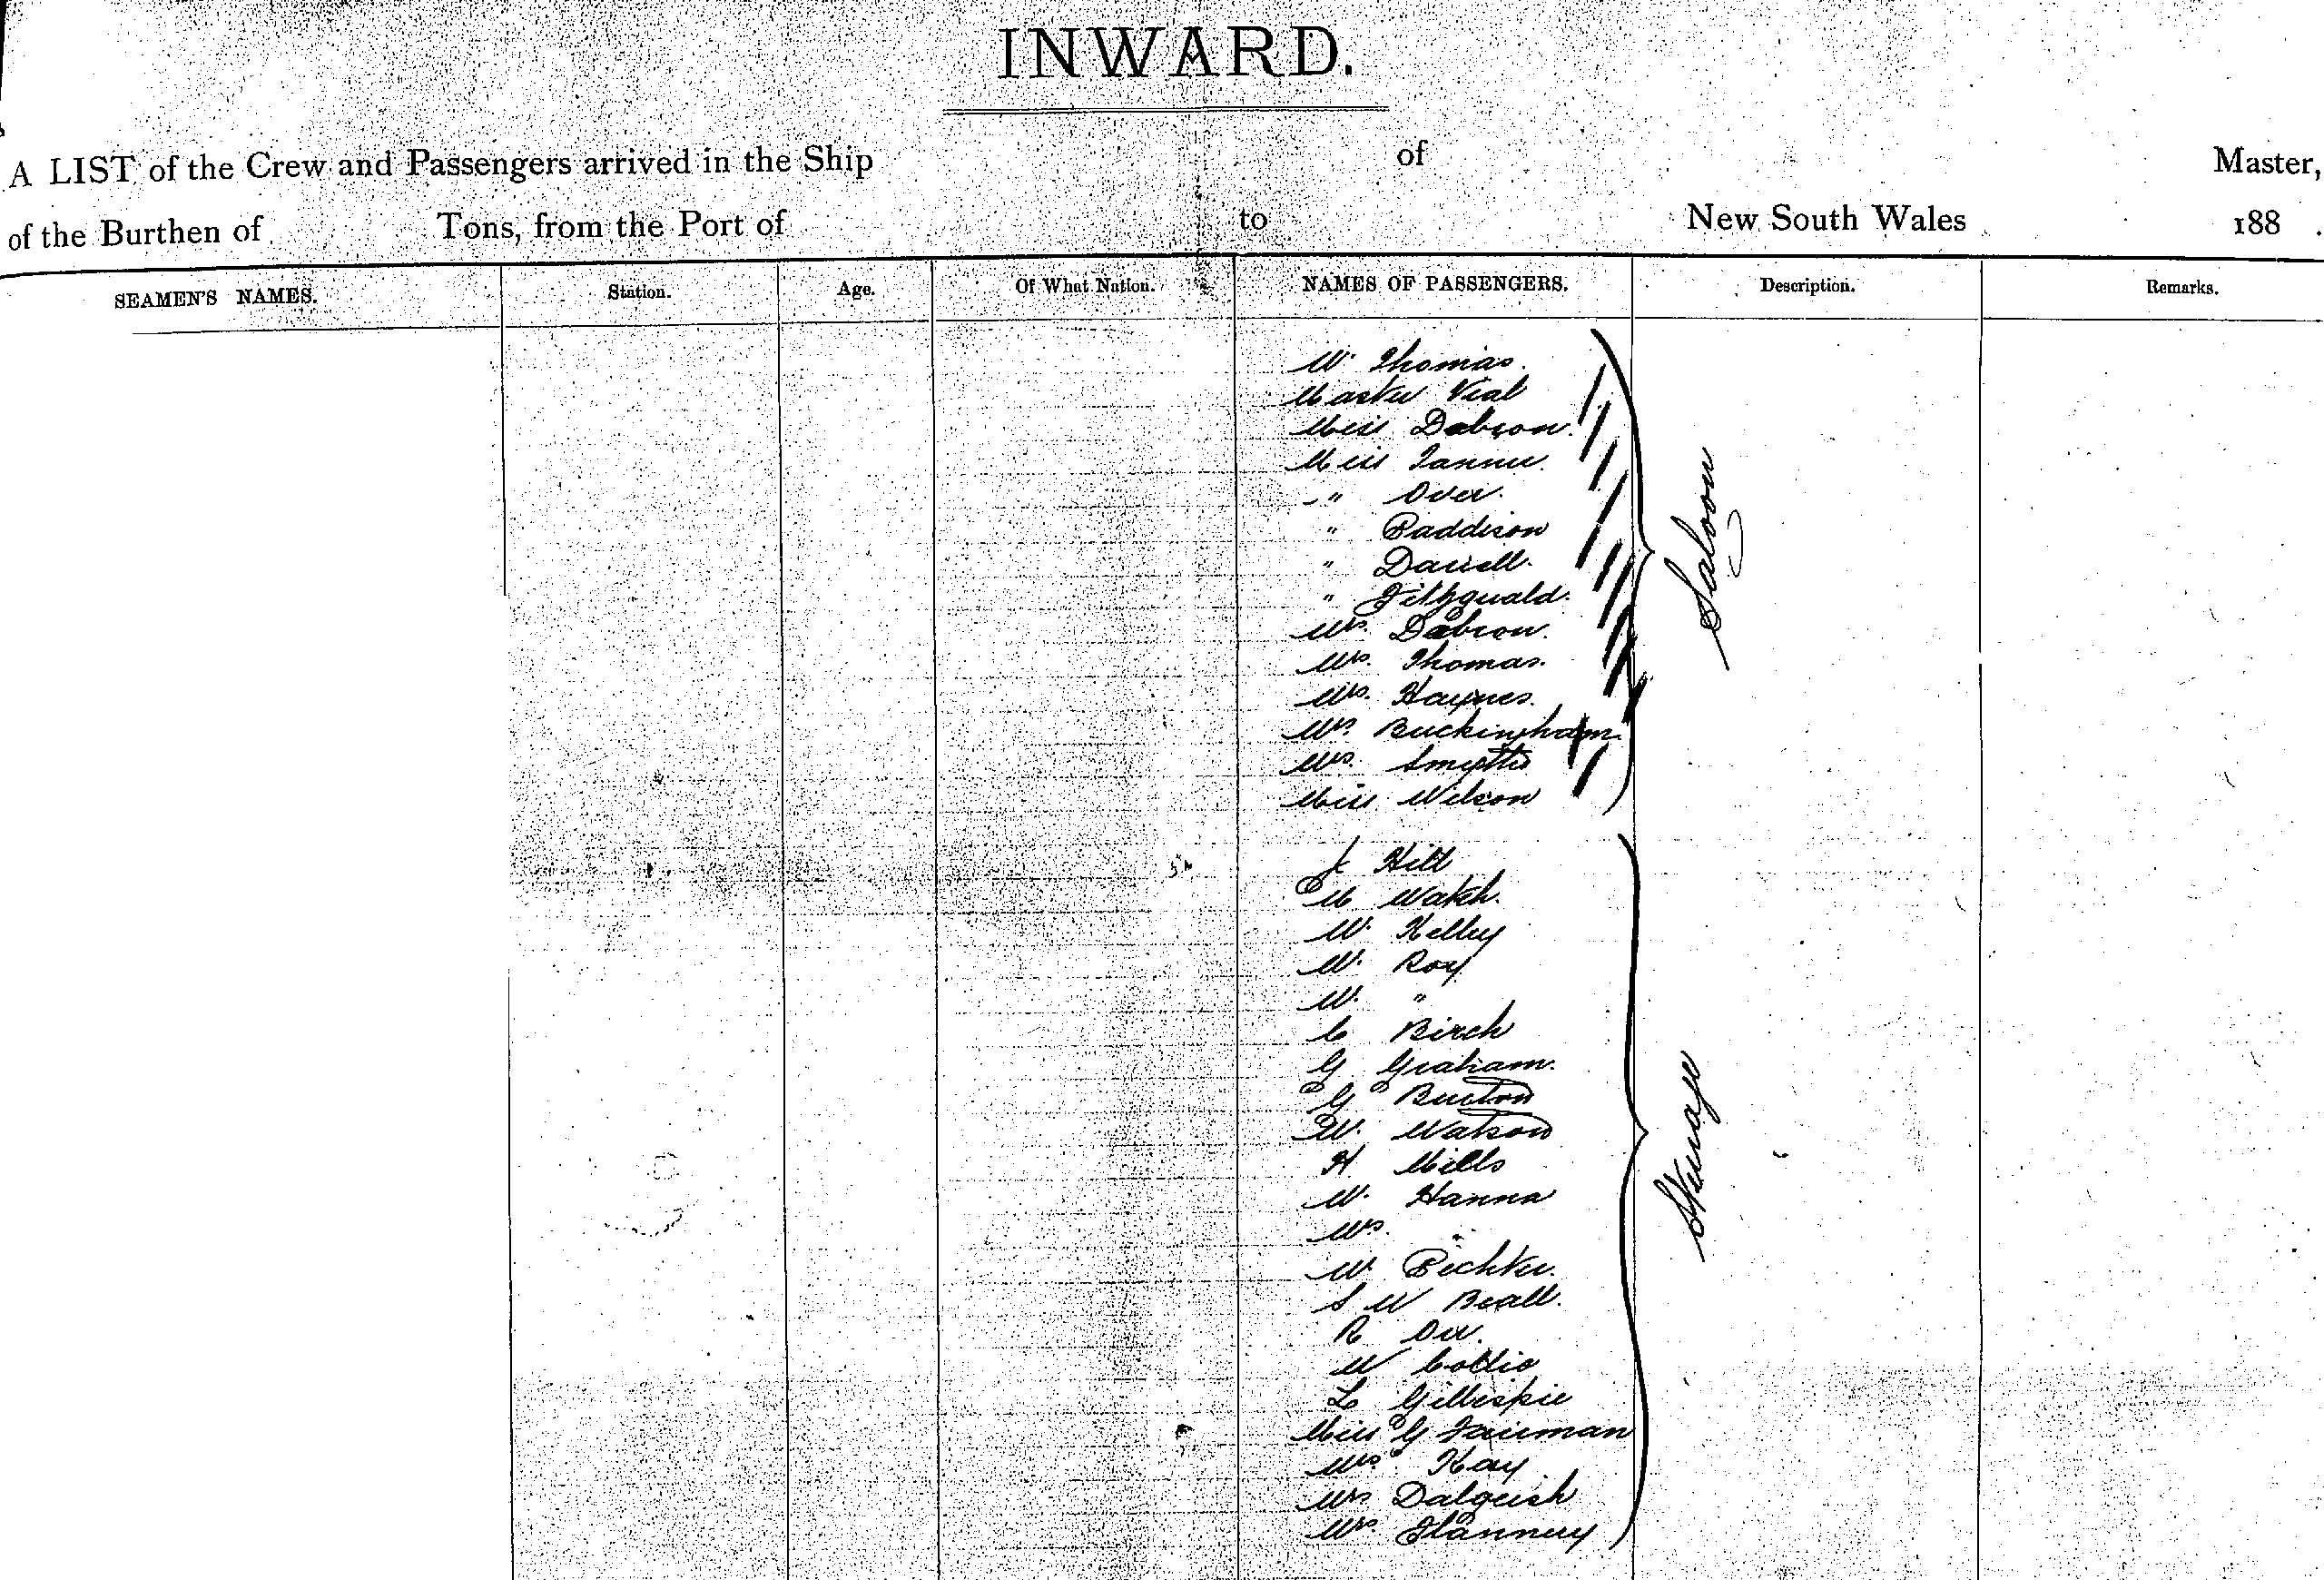 INWARD.
A LIST of the Crew and Passengers arrived in the Ship of Master,
of the Burthen of Tons, from the Port of to New South Wales 188 .
SEAMEN'S NAMES. Station. Age. Of What Nation. NAMES OF PASSENGERS. Description. Remarks.
W. Thomas.
Master Vial
Miss Dobson.
Miss
" Over.
" Paddison
" Darrell.
" Fitzgerald.
Mrs. Dobson.
Mrs. Thomas.
Mrs. Haynes.
Mrs. Buckingham.
Mrs. Smythe
Miss Wilson
Saloon
J Hill
M Walsh.
W. Kelley
W. Roy
W. "
C Birch
G Graham.
G Burton
W. Watson
H Mills
W. Hanna
Mrs. "
W.
S W Beall.
R Orr.
W
L Gillespie
Miss G Fairman
Mrs Kay
Mrs Dalgeish
Mrs. Flannery
Steerage